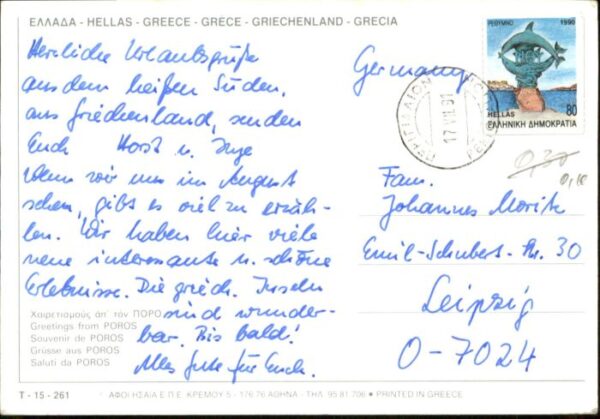 ΕΛΛΑΔΑ - HELLAS - GREECE - GRECE - GRIECHENLAND - GRECIA
Herzliche Urlaubsgrüße
aus dem heißen Süden,
aus Griechenland, senden
Euch Horst u. Inge
Wenn wir uns im August
sehen, gibt es viel zu erzäh-
len. Wir haben hier viele
neue interessante u. schöne
Erlebnisse. Die griech. Inseln
sind wunder-
bar. Bis bald!
Alles Gute für Euch.
Χαιρετισμούς ἀπ' τόν ΠΟΡΟ
Greetings from POROS
Souvenir de POROS
Grüsse aus POROS
Saluti da POROS
T - 15 - 261
ΑΦΟΙ ΗΣΑΙΑ Ε.Π.Ε. ΚΡΕΜΟΥ 5 - 176 76 ΑΘΗΝΑ - ΤΗΛ. 95 81 706 ● PRINTED IN GREECE
Germany
ΡΕΘΥΜΝΟ 1990
80
HELLAS
ΕΛΛΗΝΙΚΗ ΔΗΜΟΚΡΑΤΙΑ
17 VII 91
0,30
Fam.
Johannes Moritz
Emil-Schubert-Str. 30
Leipzig
O-7024